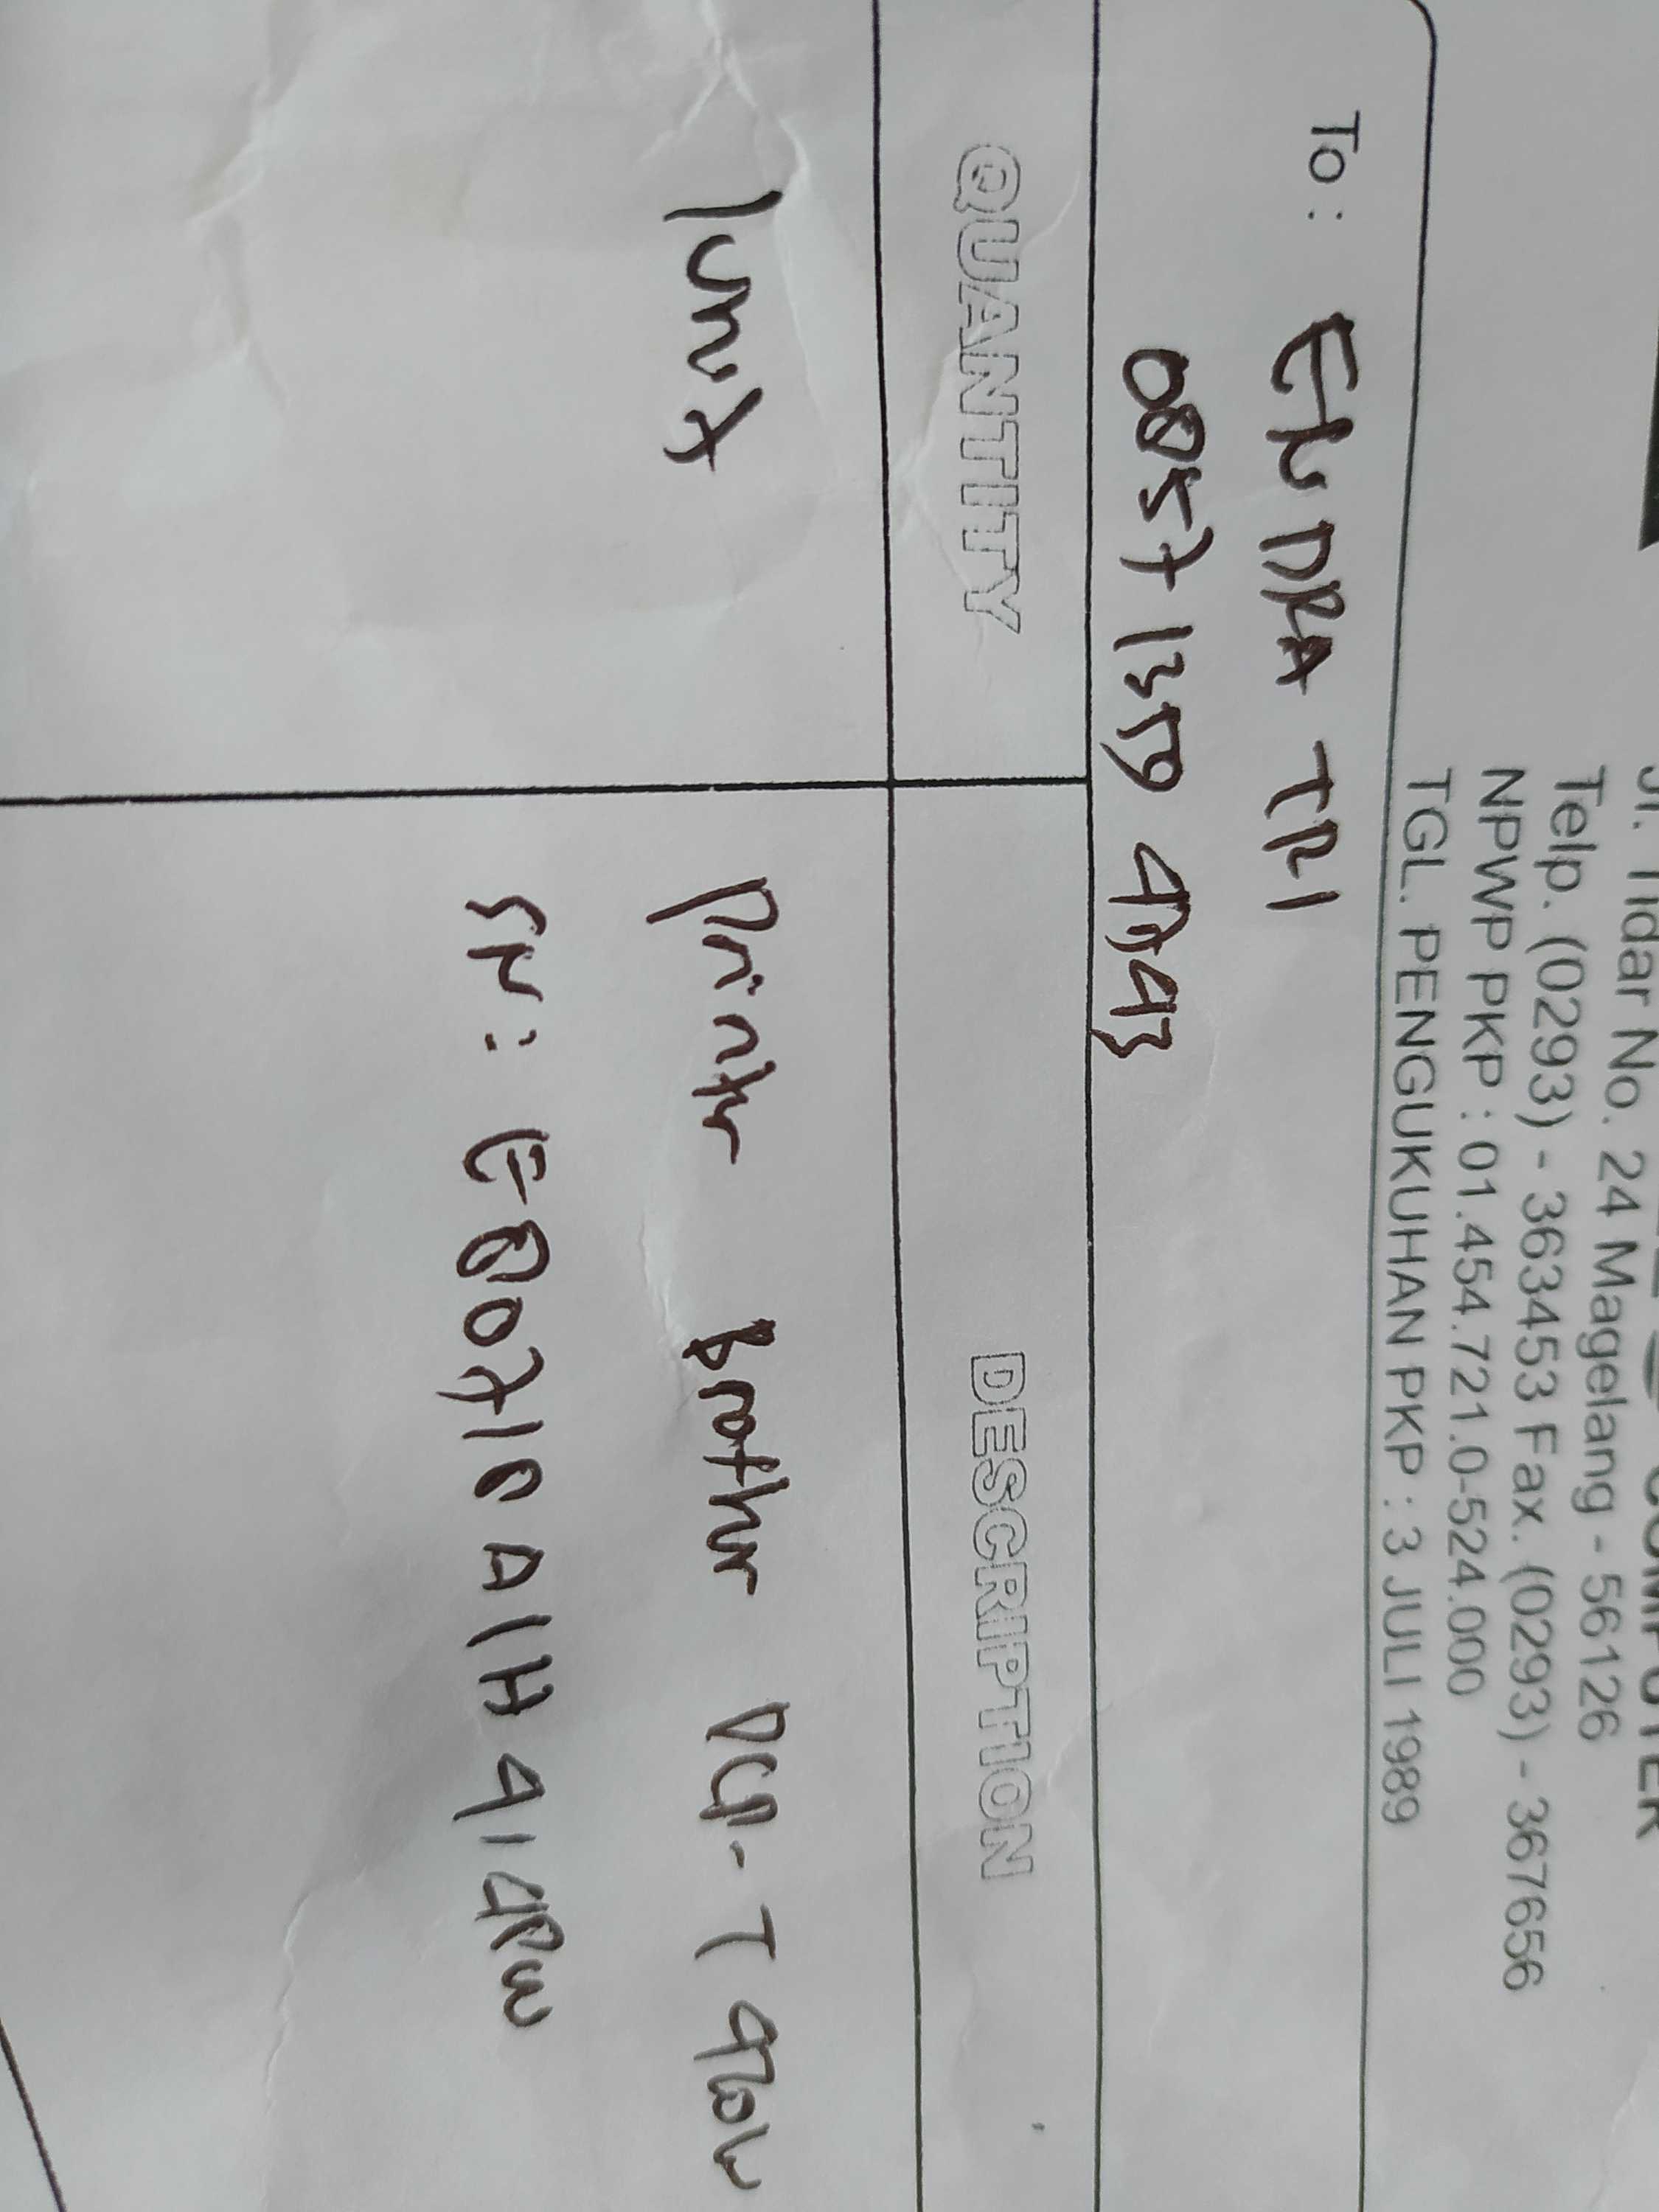 COMPUTER
Jl. Tidar No. 24 Magelang - 56126
Telp. (0293) - 363453 Fax. (0293) - 367656
NPWP PKP : 01.454.721.0-524.000
TGL. PENGUKUHAN PKP : 3 JULI 1989
To : ENDRA TRI
QUANTITY DESCRIPTION
1 unit printer brother DCP-T
SN :